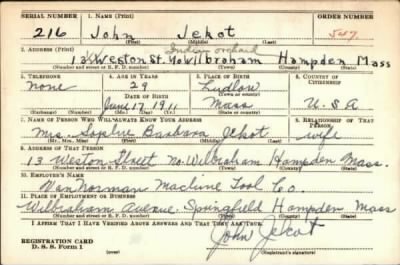 SERIAL NUMBER 1. NAME (Print) ORDER NUMBER
216 John Jekot 547
(First) (Middle) (Last)
2. ADDRESS (Print) Indian orchard
13 Weston St. No Wilbraham Hampden Mass
(Number and street or R. F. D. number) (Town) (County) (State)
3. TELEPHONE 4. AGE IN YEARS 5. PLACE OF BIRTH 6. COUNTRY OF CITIZENSHIP
none 29 Ludlow
DATE OF BIRTH (Town or county)
June 17, 1911 Mass U.S.A
(Exchange) (Number) (Mo.) (Day) (Yr.) (State or country)
7. NAME OF PERSON WHO WILL ALWAYS KNOW YOUR ADDRESS 8. RELATIONSHIP OF THAT PERSON
Mrs. Sophie Barbara Jekot wife
(Mr., Mrs., Miss) (First) (Middle) (Last)
9. ADDRESS OF THAT PERSON
13 Weston Street No. Wilbraham Hampden Mass.
(Number and street or R. F. D. number) (Town) (County) (State)
10. EMPLOYER'S NAME
Van Norman Machine Tool Co.
11. PLACE OF EMPLOYMENT OR BUSINESS
Wilbraham Avenue. Springfield Hampden Mass
(Number and street or R. F. D. number) (Town) (County) (State)
I AFFIRM THAT I HAVE VERIFIED ABOVE ANSWERS AND THAT THEY ARE TRUE.
REGISTRATION CARD
D. S. S. Form 1 John Jekot